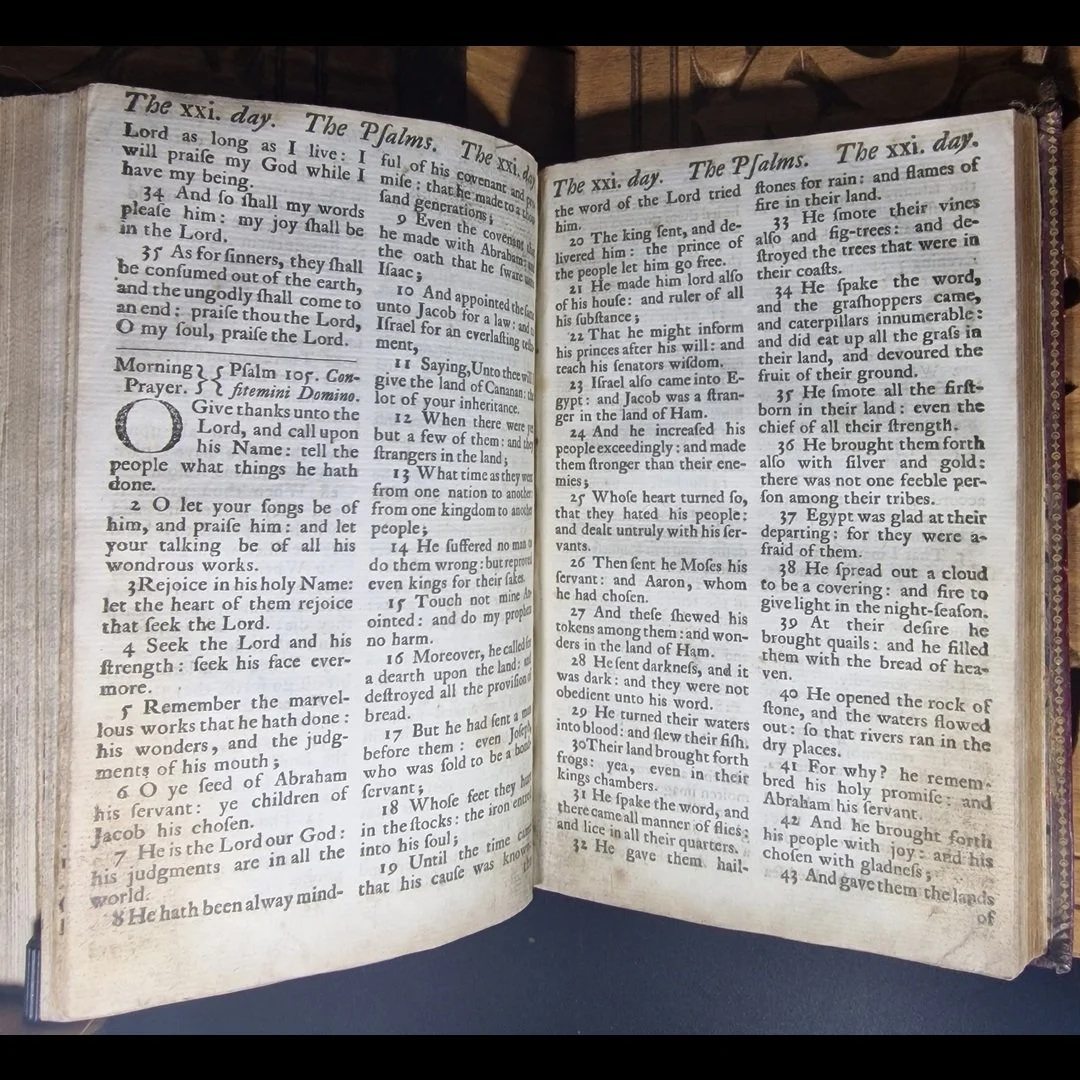 The xxi. day. The Pſalms. The xxi. day
Lord as long as I live: I
will praiſe my God while I
have my being.
34 And ſo ſhall my words
pleaſe him: my joy ſhall be
in the Lord.
35 As for ſinners, they ſhall
be conſumed out of the earth,
and the ungodly ſhall come to
an end: praiſe thou the Lord,
O my ſoul, praiſe the Lord.
Morning Pſalm 105. Con-
Prayer. fitemini Domino.
O Give thanks unto the
Lord, and call upon
his Name: tell the
people what things he hath
done.
2 O let your ſongs be of
him, and praiſe him: and let
your talking be of all his
wondrous works.
3 Rejoice in his holy Name:
let the heart of them rejoice
that ſeek the Lord.
4 Seek the Lord and his
ſtrength: ſeek his face ever-
more.
5 Remember the marvel-
lous works that he hath done:
his wonders, and the judg-
ments of his mouth;
6 O ye ſeed of Abraham
his ſervant: ye children of
Jacob his choſen.
7 He is the Lord our God:
his judgments are in all the
world.
8 He hath been alway mind-
ful of his covenant and
miſe: that he made to a
ſand generations;
9 Even the covenant
he made with Abraham:
the oath that he ſware
Iſaac;
10 And appointed the
unto Jacob for a law: and
Iſrael for an everlaſting
ment,
11 Saying, Unto thee
give the land of Cananan:
lot of your inheritance.
12 When there were
but a few of them: and they
ſtrangers in the land;
13 What time as they
from one nation to another:
from one kingdom to another
people;
14 He ſuffered no man
do them wrong: but reproved
even kings for their ſakes.
15 Touch not mine
ointed: and do my
no harm.
16 Moreover, he called for
a dearth upon the land:
deſtroyed all the proviſion
bread.
17 But he had ſent a
before them: even Joſeph,
who was ſold to be a
ſervant;
18 Whoſe feet they
in the ſtocks: the iron
into his ſoul;
19 Until the time
that his cauſe was known
The xxi. day. The Pſalms. The xxi. day.
the word of the Lord tried
him.
20 The king ſent, and de-
livered him: the prince of
the people let him go free.
21 He made him lord alſo
of his houſe: and ruler of all
his ſubſtance;
22 That he might inform
his princes after his will: and
teach his ſenators wiſdom.
23 Iſrael alſo came into E-
gypt: and Jacob was a ſtran-
ger in the land of Ham.
24 And he increaſed his
people exceedingly: and made
them ſtronger than their ene-
mies;
25 Whoſe heart turned ſo,
that they hated his people:
and dealt untruly with his ſer-
vants.
26 Then ſent he Moſes his
ſervant: and Aaron, whom
he had choſen.
27 And theſe ſhewed his
tokens among them: and won-
ders in the land of Ham.
28 He ſent darkneſs, and it
was dark: and they were not
obedient unto his word.
29 He turned their waters
into blood: and ſlew their fiſh.
30 Their land brought forth
frogs: yea, even in their
kings chambers.
31 He ſpake the word, and
there came all manner of flies:
and lice in all their quarters.
32 He gave them hail-
ſtones for rain: and flames of
fire in their land.
33 He ſmote their vines
alſo and fig-trees: and de-
ſtroyed the trees that were in
their coaſts.
34 He ſpake the word,
and the graſhoppers came,
and caterpillars innumerable:
and did eat up all the graſs in
their land, and devoured the
fruit of their ground.
35 He ſmote all the firſt-
born in their land: even the
chief of all their ſtrength.
36 He brought them forth
alſo with ſilver and gold:
there was not one feeble per-
ſon among their tribes.
37 Egypt was glad at their
departing: for they were a-
fraid of them.
38 He ſpread out a cloud
to be a covering: and fire to
give light in the night-ſeaſon.
39 At their deſire he
brought quails: and he filled
them with the bread of hea-
ven.
40 He opened the rock of
ſtone, and the waters flowed
out: ſo that rivers ran in the
dry places.
41 For why? he remem-
bred his holy promiſe: and
Abraham his ſervant.
42 And he brought forth
his people with joy: and his
choſen with gladneſs;
43 And gave them the lands
of